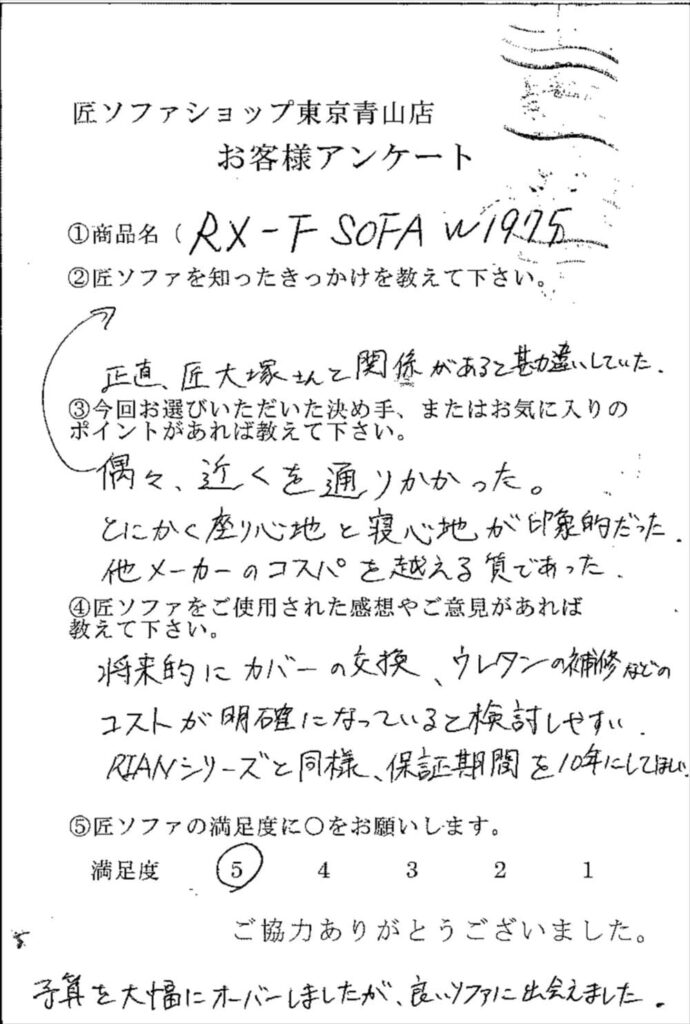 匠ソファショップ東京青山店
お客様アンケート
①商品名（ RX-F SOFA W1975
②匠ソファを知ったきっかけを教えて下さい。
正直、匠大塚さんと関係があると勘違いしていた.
③今回お選びいただいた決め手、またはお気に入りの
ポイントがあれば教えて下さい。
偶々、近くを通りかかった。
とにかく座り心地と寝心地が印象的だった.
他メーカーのコスパを越える質であった.
④匠ソファをご使用された感想やご意見があれば
教えて下さい。
将来的にカバーの交換、ウレタンの補修などの
コストが明確になっていると検討しやすい.
RIANシリーズと同様、保証期間を10年にしてほしい.
⑤匠ソファの満足度に〇をお願いします。
満足度 5 4 3 2 1
ご協力ありがとうございました。
予算を大幅にオーバーしましたが、良いソファに出会えました.